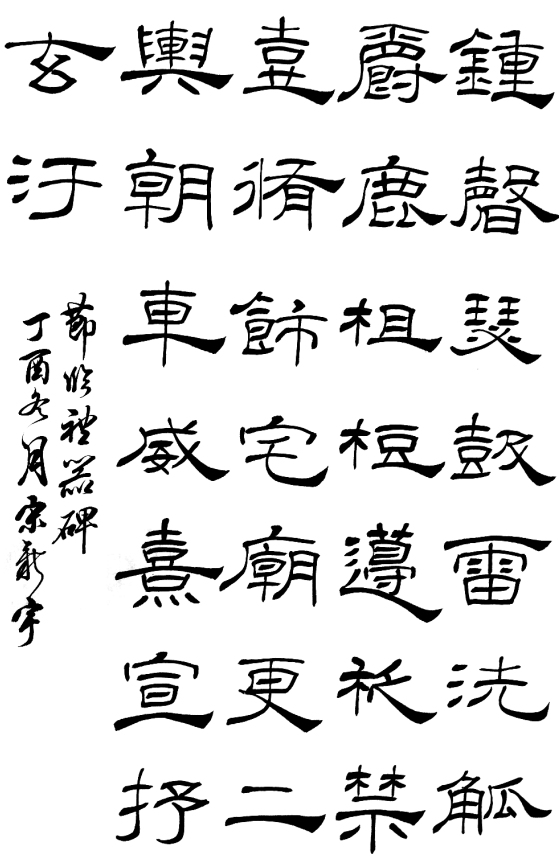 鍾磬瑟鼓雷洗觚
爵鹿柤梪籩柉禁
壺脩飾宅廟更二
輿朝車威熹宣抒
玄汙
節臨禮器碑
丁酉冬月宋新宇